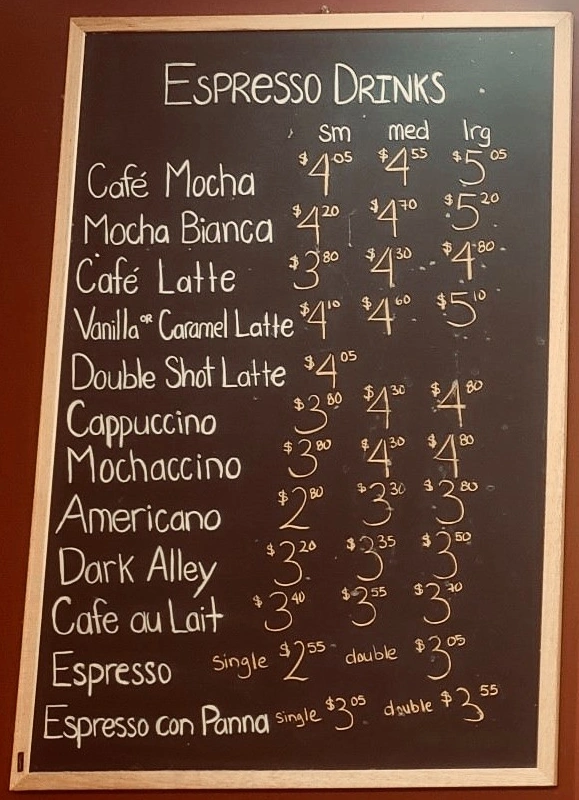 ESPRESSO DRINKS
sm med lrg
Café Mocha $4.05 $4.55 $5.05
Mocha Bianca $4.20 $4.70 $5.20
Café Latte $3.80 $4.30 $4.80
Vanilla OR Caramel Latte $4.10 $4.60 $5.10
Double Shot Latte $4.05
Cappuccino $3.80 $4.30 $4.80
Mochaccino $3.80 $4.30 $4.80
Americano $2.80 $3.30 $3.80
Dark Alley $3.20 $3.35 $3.50
Cafe au Lait $3.40 $3.55 $3.70
Espresso single $2.55 double $3.05
Espresso con Panna single $3.05 double $3.55